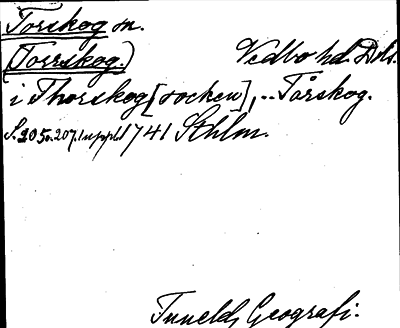 Torskog sn.
(Torrskog.) Vedbo hd. Dls.
i Thorskog [socken], .. Tårskog.
S. 205 o. 207. 1 uppl. 1741 Sthlm.
Tunelds Geografi.